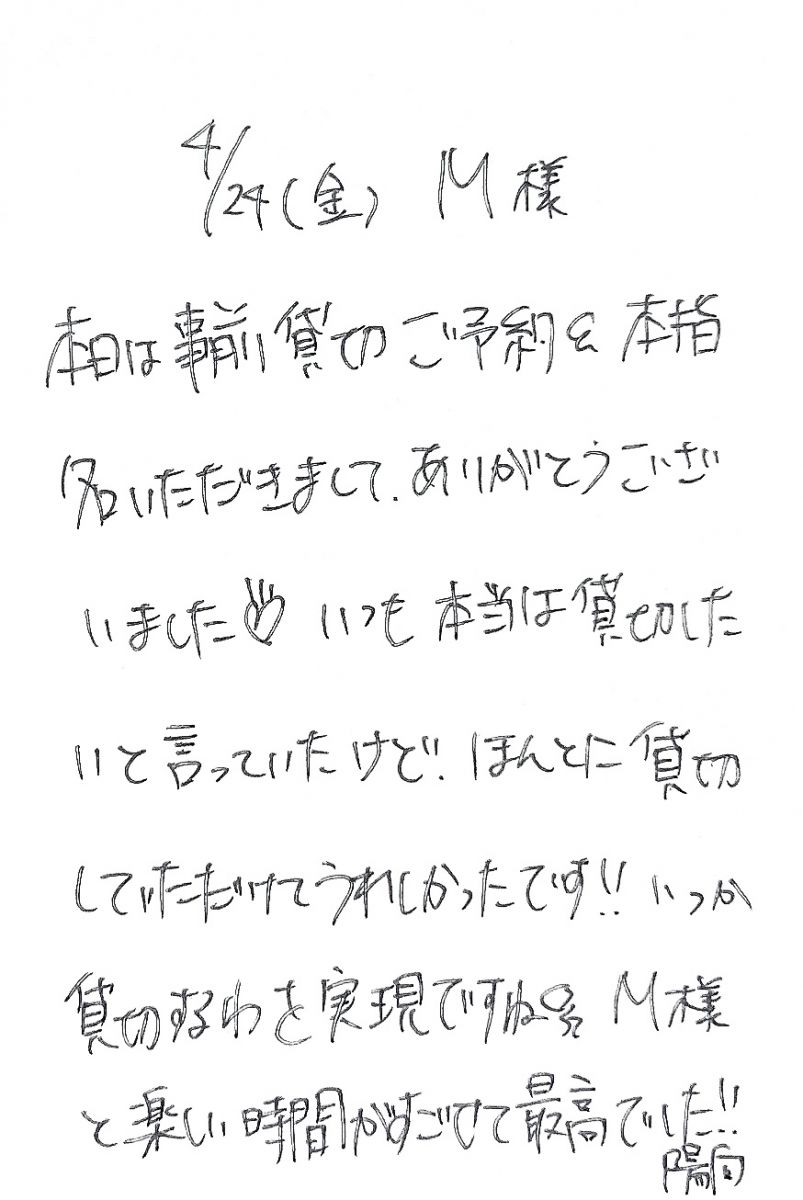 4/24(金) M様
本日は事前貸切ご予約&本指
名いただきまして、ありがとうござ
いました いつも本当は貸切した
いと言っていたけど、ほんとに貸切
していただけてうれしかったです!! いつか
貸切するわを実現ですね M様
と楽しい時間がすごせて最高でした!!
陽向